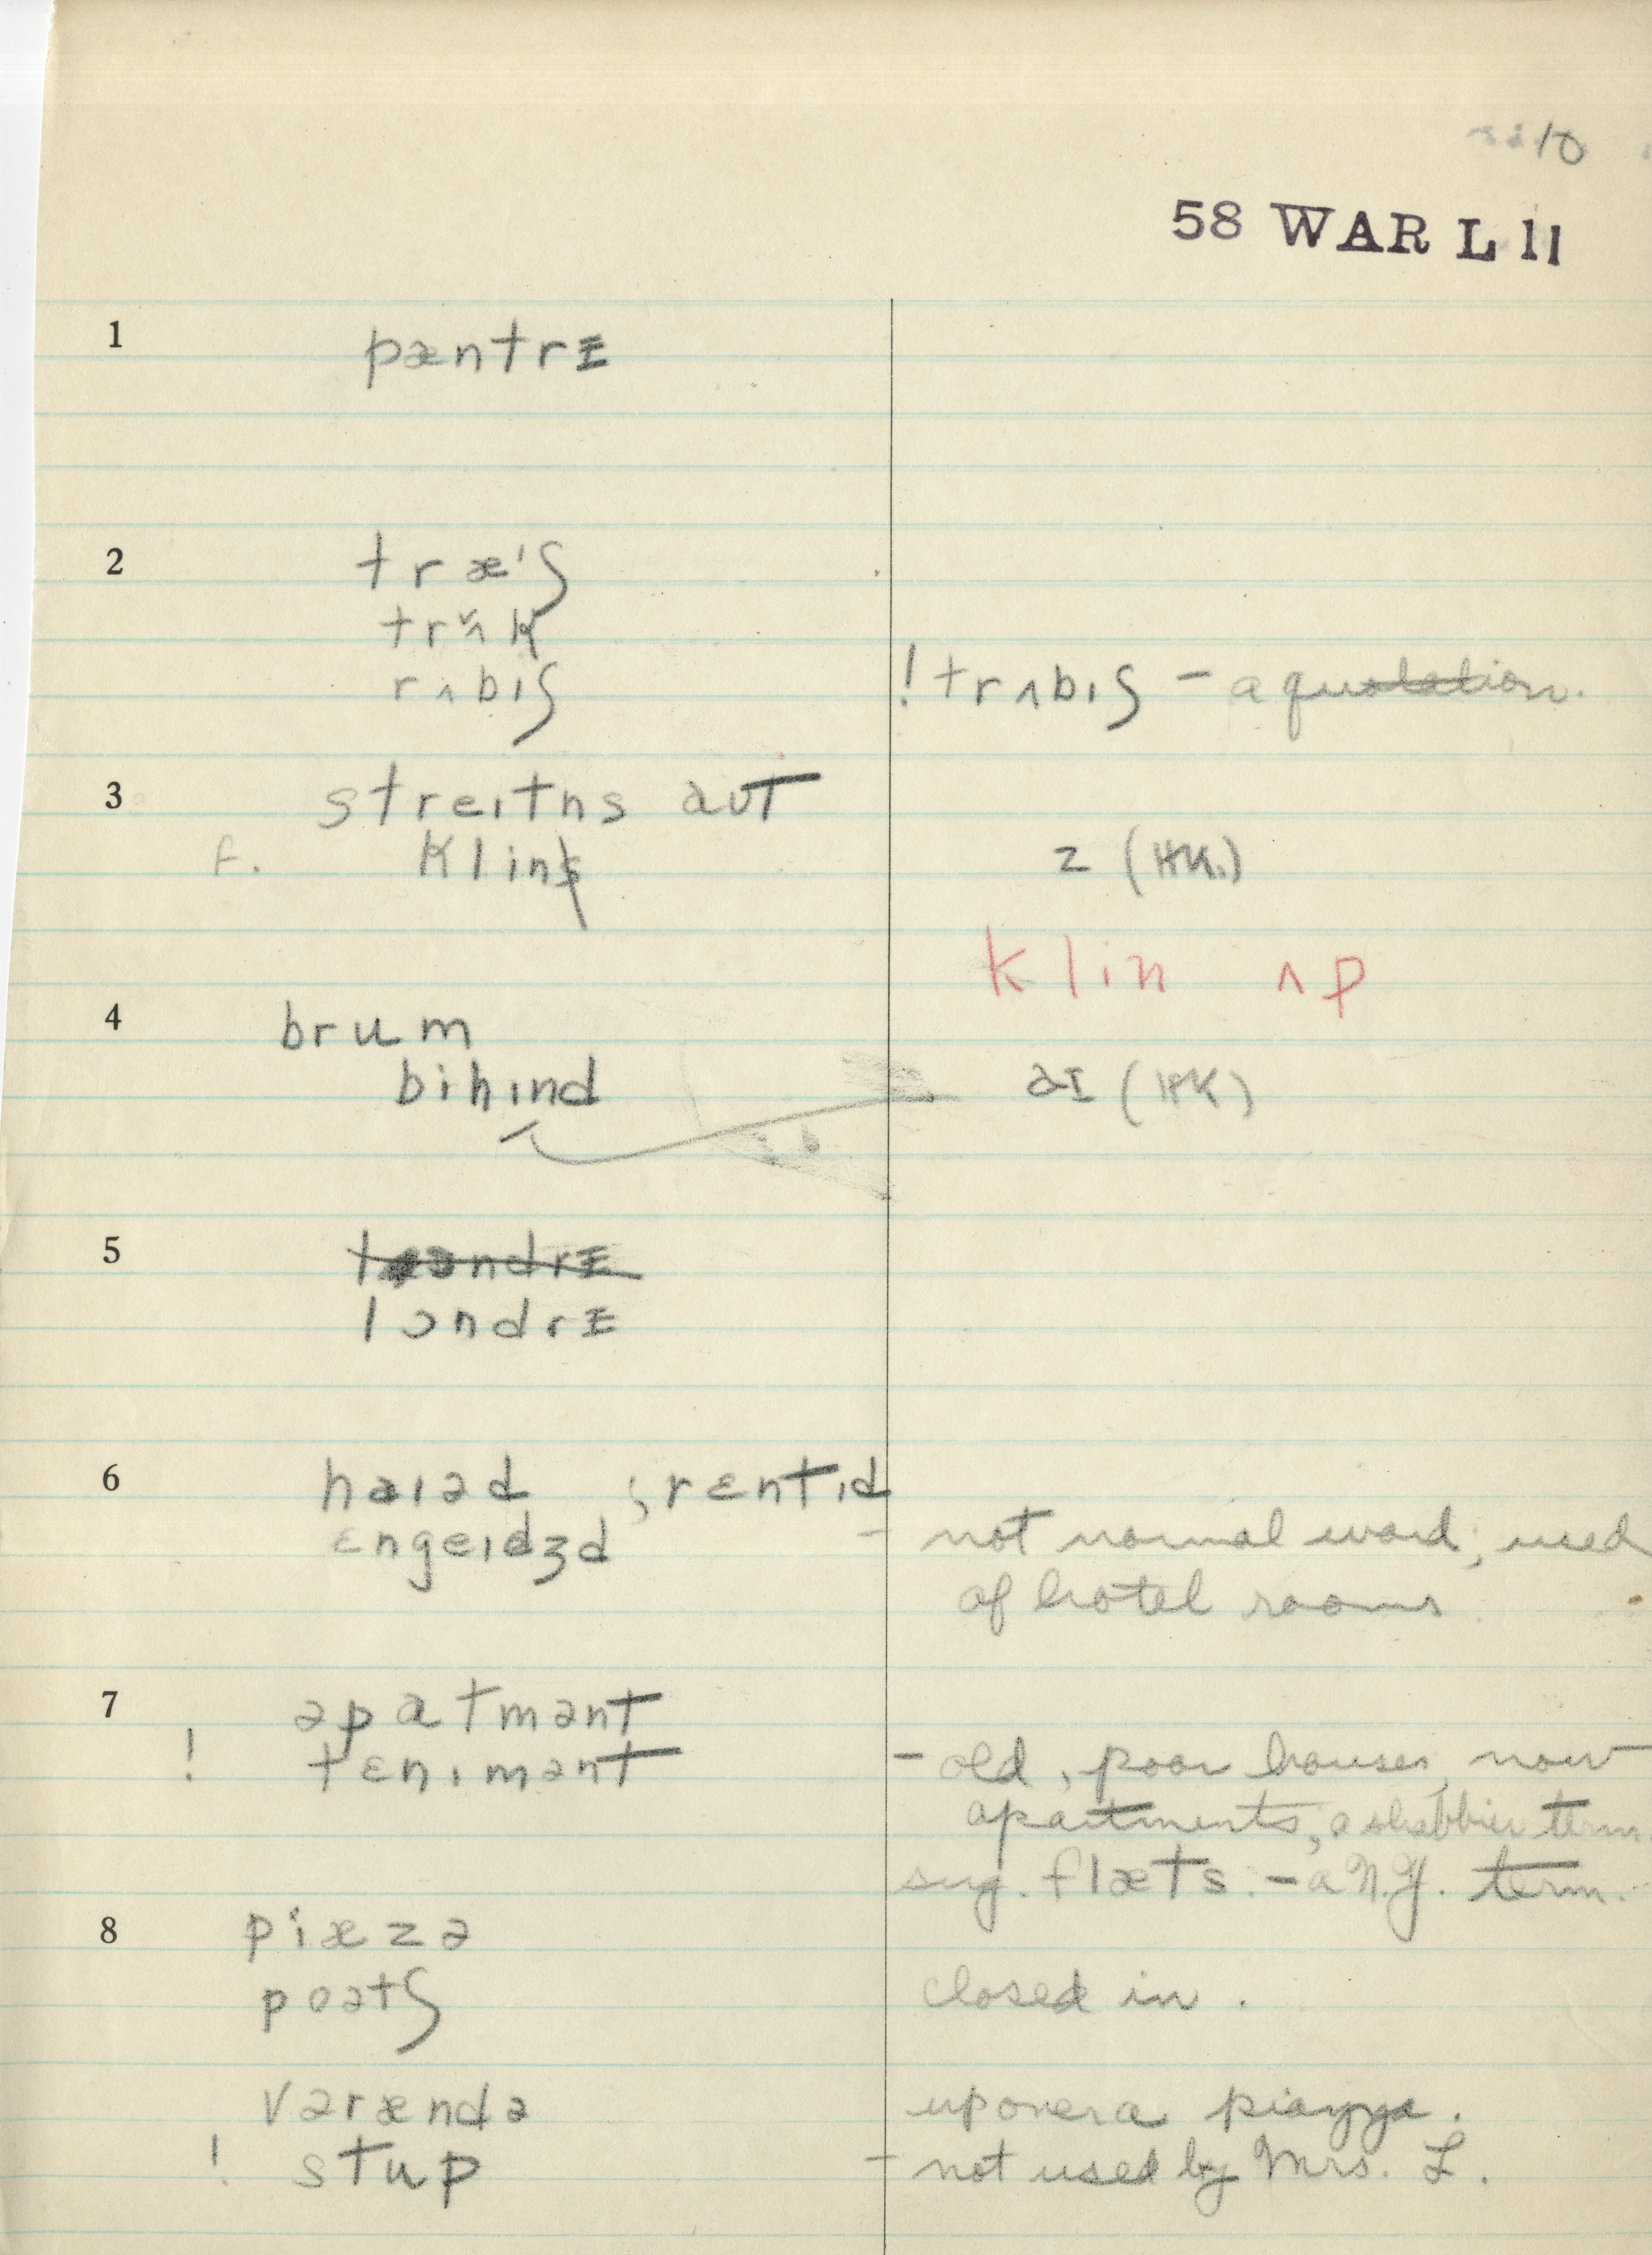 10
58 WAR L 11
1 pæntrɪ
2 træˈʃ
trʌ̌k
rʌbɪʃ ! trʌbɪʃ – a quotation.
3 streɪtns aʊt
f. klins z (HK.)
klin ʌp
4 brum
bihɪnd aɪ (HK)
5 lɔəndrɪ
lɔndrɪ
6 haɪəd ; rɛntɪd
ɛngeɪdʒd – not normal word; used
of hotel rooms
7 əpatmənt
! tɛnɪmənt – old, poor houses, now
apartments, a shabbier term.
sug. flæts. – a N.Y. term.
8 piæzə
poətʃ closed in.
vərændə upon era piazza.
! stup – not used by Mrs. L.